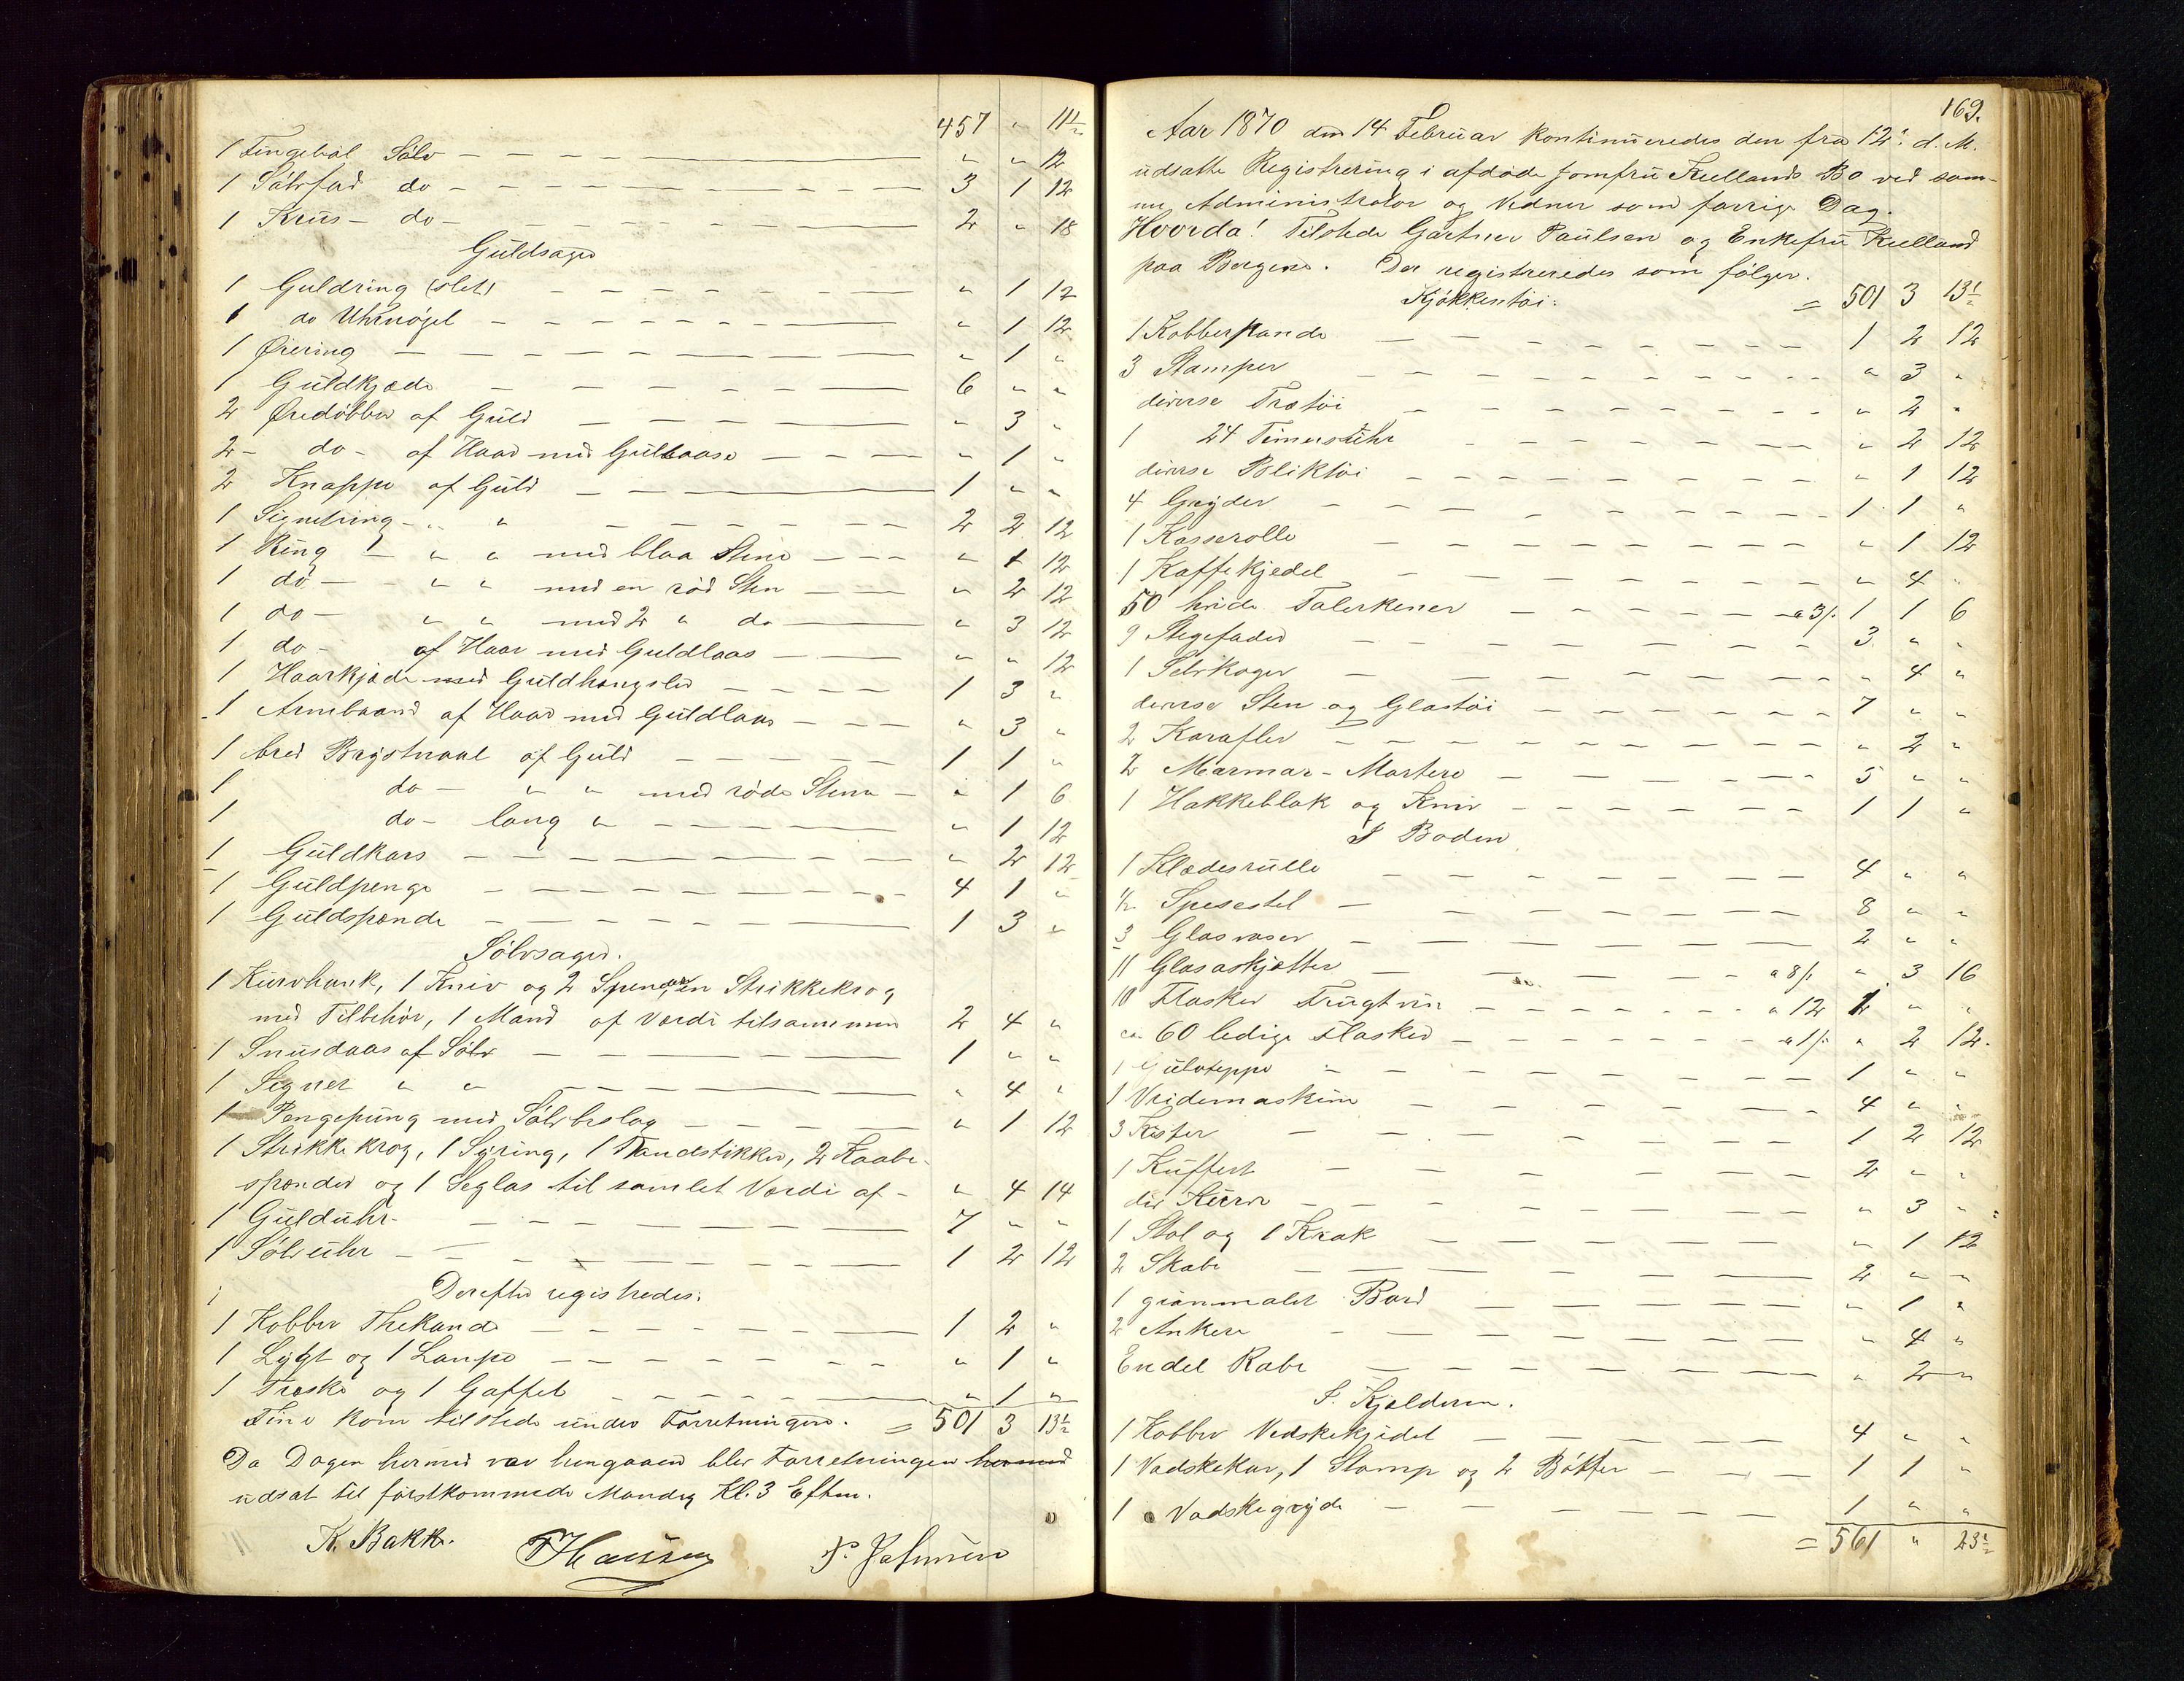 457 " 11½
1 Fingebøl Sølv " " 12
1 Sølvfad do 3 1 12
1 Krus do 2 " 18
Guldsager
1 Guldring (slet) " 1 12
1 do Uhrnøgel " 1 12
1 Ørering " 1 "
1 Guldkjæde 6 " "
2 Øredobber af Guld " 3 "
2 do af Haar med Guldlaase " 1 "
2 Knappe af Guld 1 " "
1 Signetring " " 2 2 12
1 Ring " " med blaa Stene " 1 12
1 do " " med en rød Sten " 2 12
1 do " " med 2 " do " 3 12
1 do af Haar med Guldlaas " " 12
1 Haarkjæde med Guldhængsler 1 3 "
1 Armbaand af Haar med Guldlaas " 3 "
1 bred Brystnaal af Guld 1 1 "
1 do " " med røde Stene " 1 6
1 do lang " " 1 12
1 Guldkors " 2 12
1 Guldpenge 4 1 "
1 Guldspænde 1 3 "
Sølvsager.
1 Kurvhank, 1 Kniv og 2 Spender, en Strikkekrog
med Tilbehør, 1 Mand af Værdi tilsammen 2 4 "
1 Snusdaas af Sølv 1 " "
1 Signet " " " 4 "
1 Pengepung med Sølvbeslag " 1 12
1 Strikkekrog, 1 Syring, 1 Tandstikker, 2 Kaabe-
spænder og 1 Seglas til samlet Værdi af " 4 14
1 Gulduhr 7 " "
1 Sølvuhr 1 2 12
Derefter registredes:
1 Kobber Thekande 1 2 "
1 Lygt og 1 Lampe " 1 "
1 Træske og 1 Gaffel " 1 "
Fine kom tilstede under Forretningen. = 501 3 13½
Da Dagen hermed var hengaaen blev Forretningen hermed
udsat til førstkommende Mandag Kl. 3 Efterm.
K. Bakke. T Hansen
169.
Aar 1870 den 14 Februar kontinueredes den fra 12te d. M.
udsatte Registrering i afdøde Jomfru Kiellands Bo ved sam-
me Administrator og Vidner som forrige Dag.
Hvorda! Tilstede Gartner Paulsen og Enkefru Kielland
paa Bergene. Der registreredes som følger.
Kjøkkentøi: = 501 3 13½
1 Kobberpande 1 2 12
3 Stamper " 3 "
diverse Trætøi " 2 "
1 24 Timersuhr " 2 12
diverse Bliktøi " 1 12
4 Gryder 1 1 "
1 Kasserolle " 1 12
1 Kaffekjedel " 4 "
50 hvide Talerkener a 3/. 1 1 6
9 Stegefader 3 " "
1 Selvkoger " 4 "
diverse Sten og Glastøi 7 " "
2 Karafler " 2 "
2 Marmor-Mortere 5 " "
1 Hakkeblok og Kniv 1 1 "
I Boden
1 Klædesrulle 4 " "
½ Spisestel 8 " "
3 Glasvaser 2 " "
11 Glasaskjetter a 8/. " 3 16
10 Flasker Frugtvin a 12 1 " "
ca. 60 ledige Flasker a 1/. " 2 12
1 Gulvteppe 1 " "
1 Vridemaskine 4 " "
3 Kister 1 2 12
1 Kuffert 2 " "
div Kurve " 3 "
1 Stol og 1 Krak " 1 12
2 Skabe 2 " "
1 grønmalet Bord " 1 "
2 Ankere " 4 "
Endel Kabe " 2 "
I. Kjelderen.
1 Kobber Vadskekjedel 4 " "
1 Vadskekar, 1 Stamp og 2 Bøtter 1 1 "
1 Vadskegryde 1 " "
= 561 " 23½